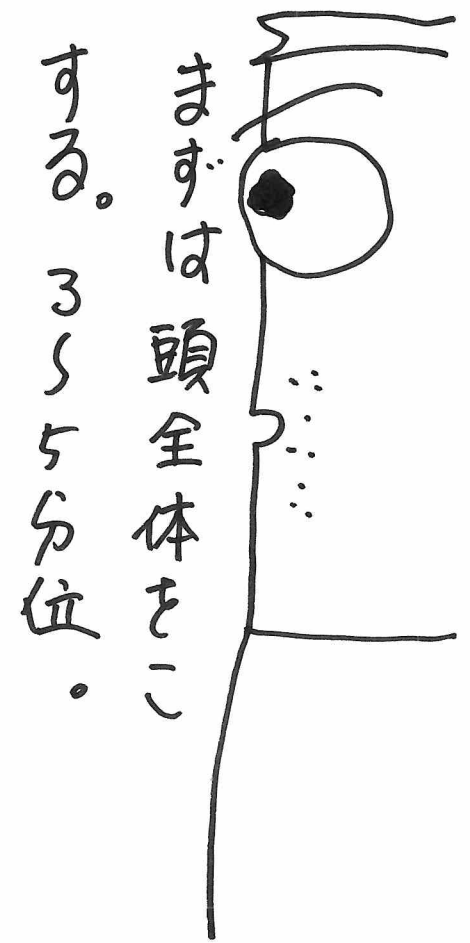 まずは頭全体をこ
する。3〜5分位。